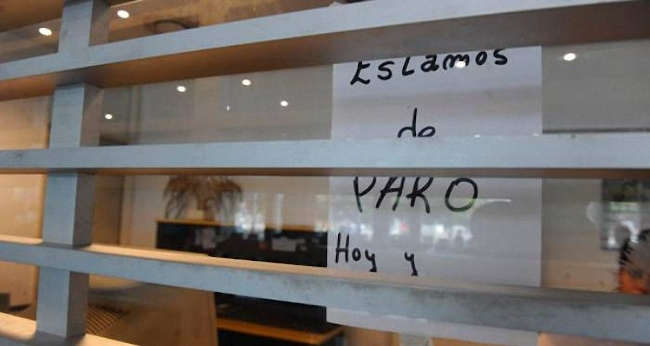 Estamos
de
PARO
Hoy y